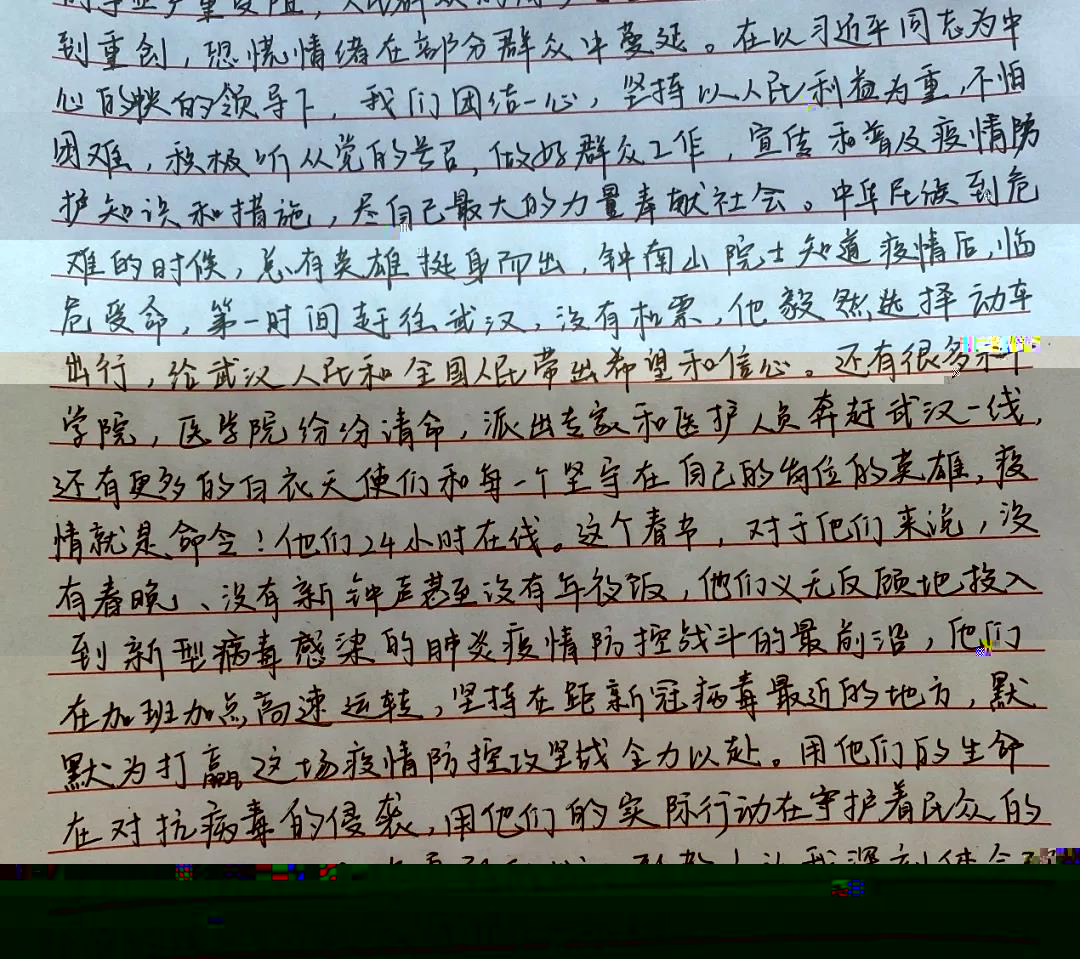 到重创，恐慌情绪在部分群众中蔓延。在以习近平同志为中
心的的领导下，我们团结一心，坚持以人民利益为重，不怕
困难，积极听从党的号召，做好群众工作，宣传和普及疫情防
护知识和措施，尽自己最大的力量奉献社会。中华民族到危
难的时候，总有英雄挺身而出，钟南山院士知道疫情后，临
危受命，第一时间赶往武汉，没有机票，他毅然选择动车
出行，给武汉人民和全国人民带出希望和信心。还有很多
学院，医学院纷纷请命，派出专家和医护人员奔赶武汉一线，
还有更多的白衣天使们和每一个坚守在自己的岗位的英雄，疫
情就是命令！他们24小时在线。这个春节，对于他们来说，没
有春晚、没有新钟声甚至没有年夜饭，他们义无反顾地投入
到新型病毒感染的肺炎疫情防控战斗的最前沿，他们
在加班加点高速运转，坚持在距新冠病毒最近的地方，默
默为打赢这场疫情防控攻坚战全力以赴。用他们的生命
在对抗病毒的侵袭，用他们的实际行动在守护着民众的